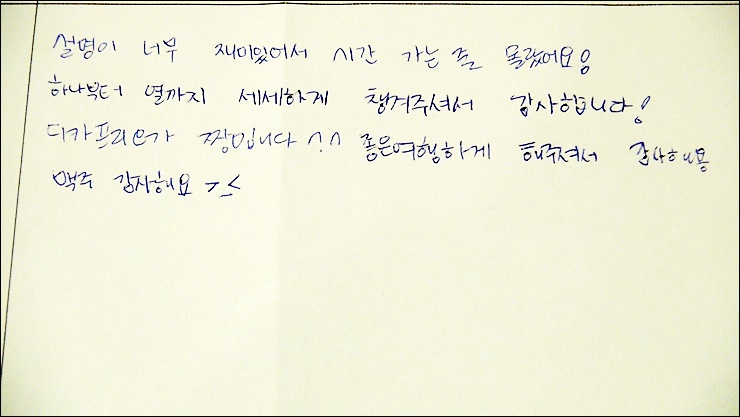 설명이 너무 재미있어서 시간 가는 줄 몰랐어요!
하나부터 열까지 세세하게 챙겨주셔서 감사합니다!
디카프리오가 짱입니다 ^.^ 좋은여행하게 해주셔서 감사해용
맥주 감사해요 >_<